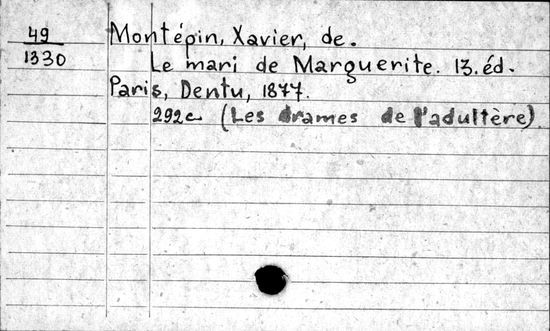 49
1330
Montépin, Xavier, de.
Le mari de Marguerite. 13. éd.
Paris, Dentu, 1877.
292c (Les drames de l'adultère)